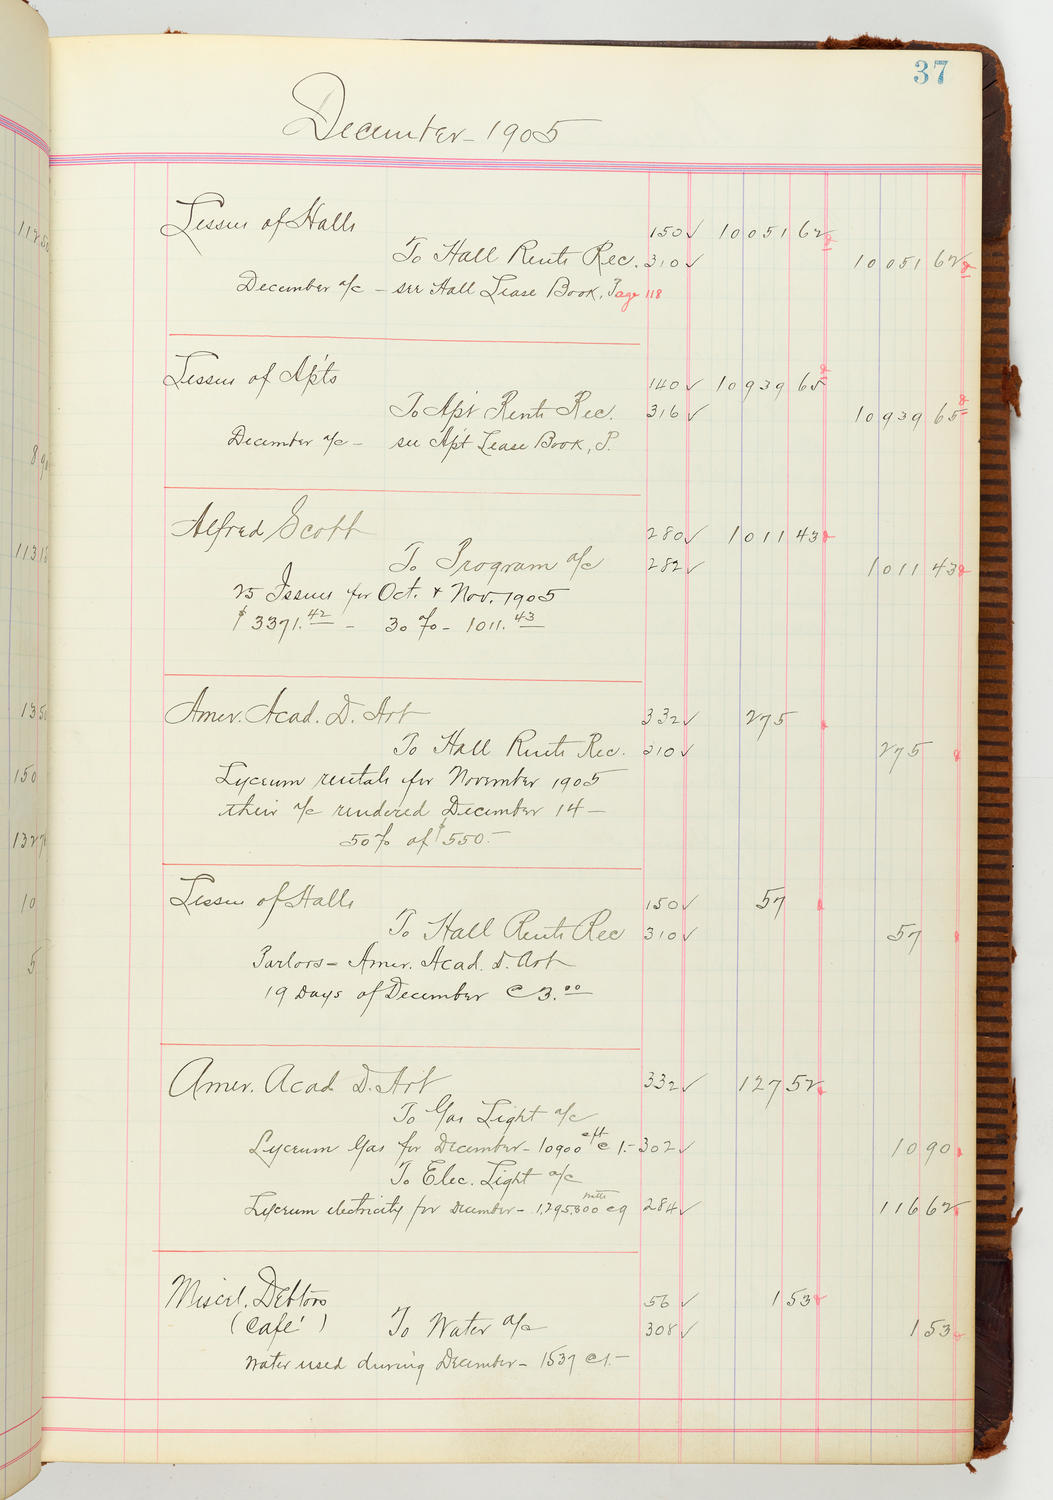 37
December - 1905
Lessees of Halls 150 ✓ 10051 62
To Hall Rents Rec. 310 ✓ 10051 62
December a/c - see Hall Lease Book, Page 118
Lessees of Apts 140 ✓ 10939 65
To Apt Rents Rec. 316 ✓ 10939 65
December a/c - see Apt Lease Book, P.
Alfred Scott 280 ✓ 1011 43
To Program a/c 282 ✓ 1011 43
25 Issues for Oct. & Nov. 1905
$3371.42 - 30% - 1011.43
Amer. Acad. D. Art 332 ✓ 275
To Hall Rents Rec. 310 ✓ 275
Lyceum rentals for November 1905
their a/c rendered December 14 -
50% of $550.-
Lessees of Halls 150 ✓ 57
To Hall Rents Rec 310 ✓ 57
Parlors - Amer. Acad. D. Art
19 Days of December @ 3.00
Amer. Acad D. Art 332 ✓ 127 52
To Gas Light a/c
Lyceum Gas for December - 10900 cft @ 1.- 302 ✓ 10 90
To Elec. Light a/c
Lyceum electricity for December - 1,295,800 watts @ 9 284 ✓ 116 62
Miscel. Debtors 56 ✓ 1 53
(Café) To Water a/c 308 ✓ 1 53
Water used during December - 1537 @ 1.-
1125
890
1131
1350
150
132
10
5